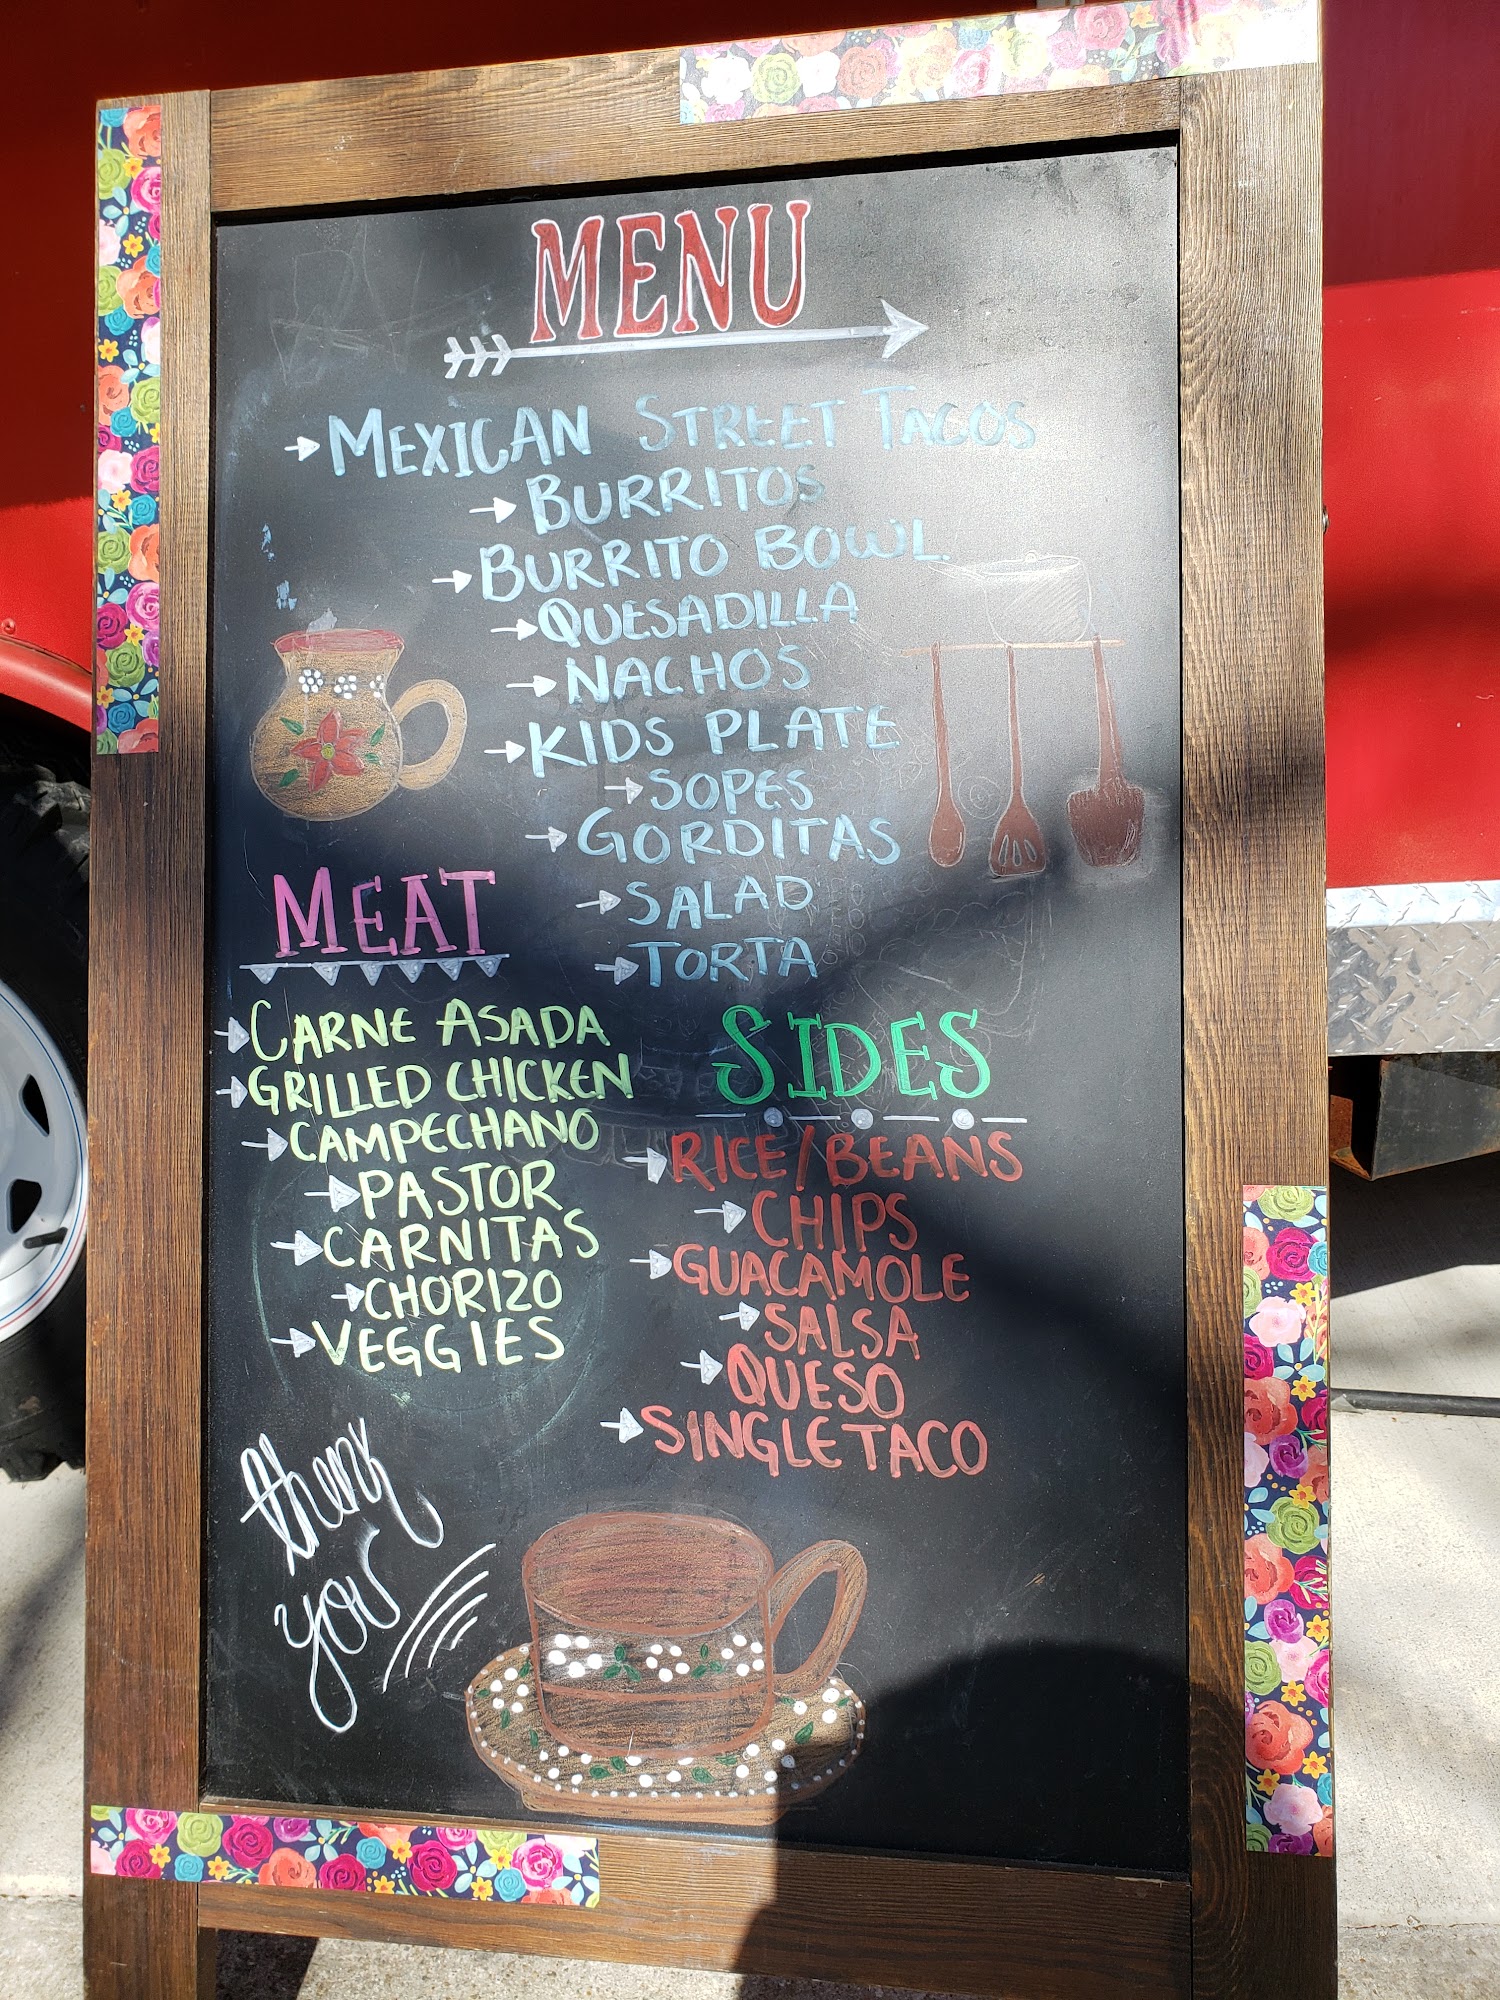 MENU
MEXICAN STREET TACOS
BURRITOS
BURRITO BOWL
QUESADILLA
NACHOS
KIDS PLATE
SOPES
GORDITAS
SALAD
TORTA
MEAT
CARNE ASADA
GRILLED CHICKEN
CAMPECHANO
PASTOR
CARNITAS
CHORIZO
VEGGIES
SIDES
RICE/BEANS
CHIPS
GUACAMOLE
SALSA
QUESO
SINGLE TACO
thank
you